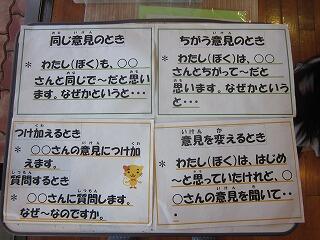 同じ意見のとき
* わたし（ぼく）も、○○
さんと同じで～だと思い
ます。なぜかというと・・・
ちがう意見のとき
* わたし（ぼく）は、○○
さんとちがって～だと
思います。なぜかという
と・・・
つけ加えるとき
* ○○さんの意見につけ加
えます。
質問するとき
* ○○さんに質問します。
なぜ～なのですか。
意見を変えるとき
* わたし（ぼく）は、はじめ
～と思っていたけれど、○
○さんの意見を聞いて・・
・